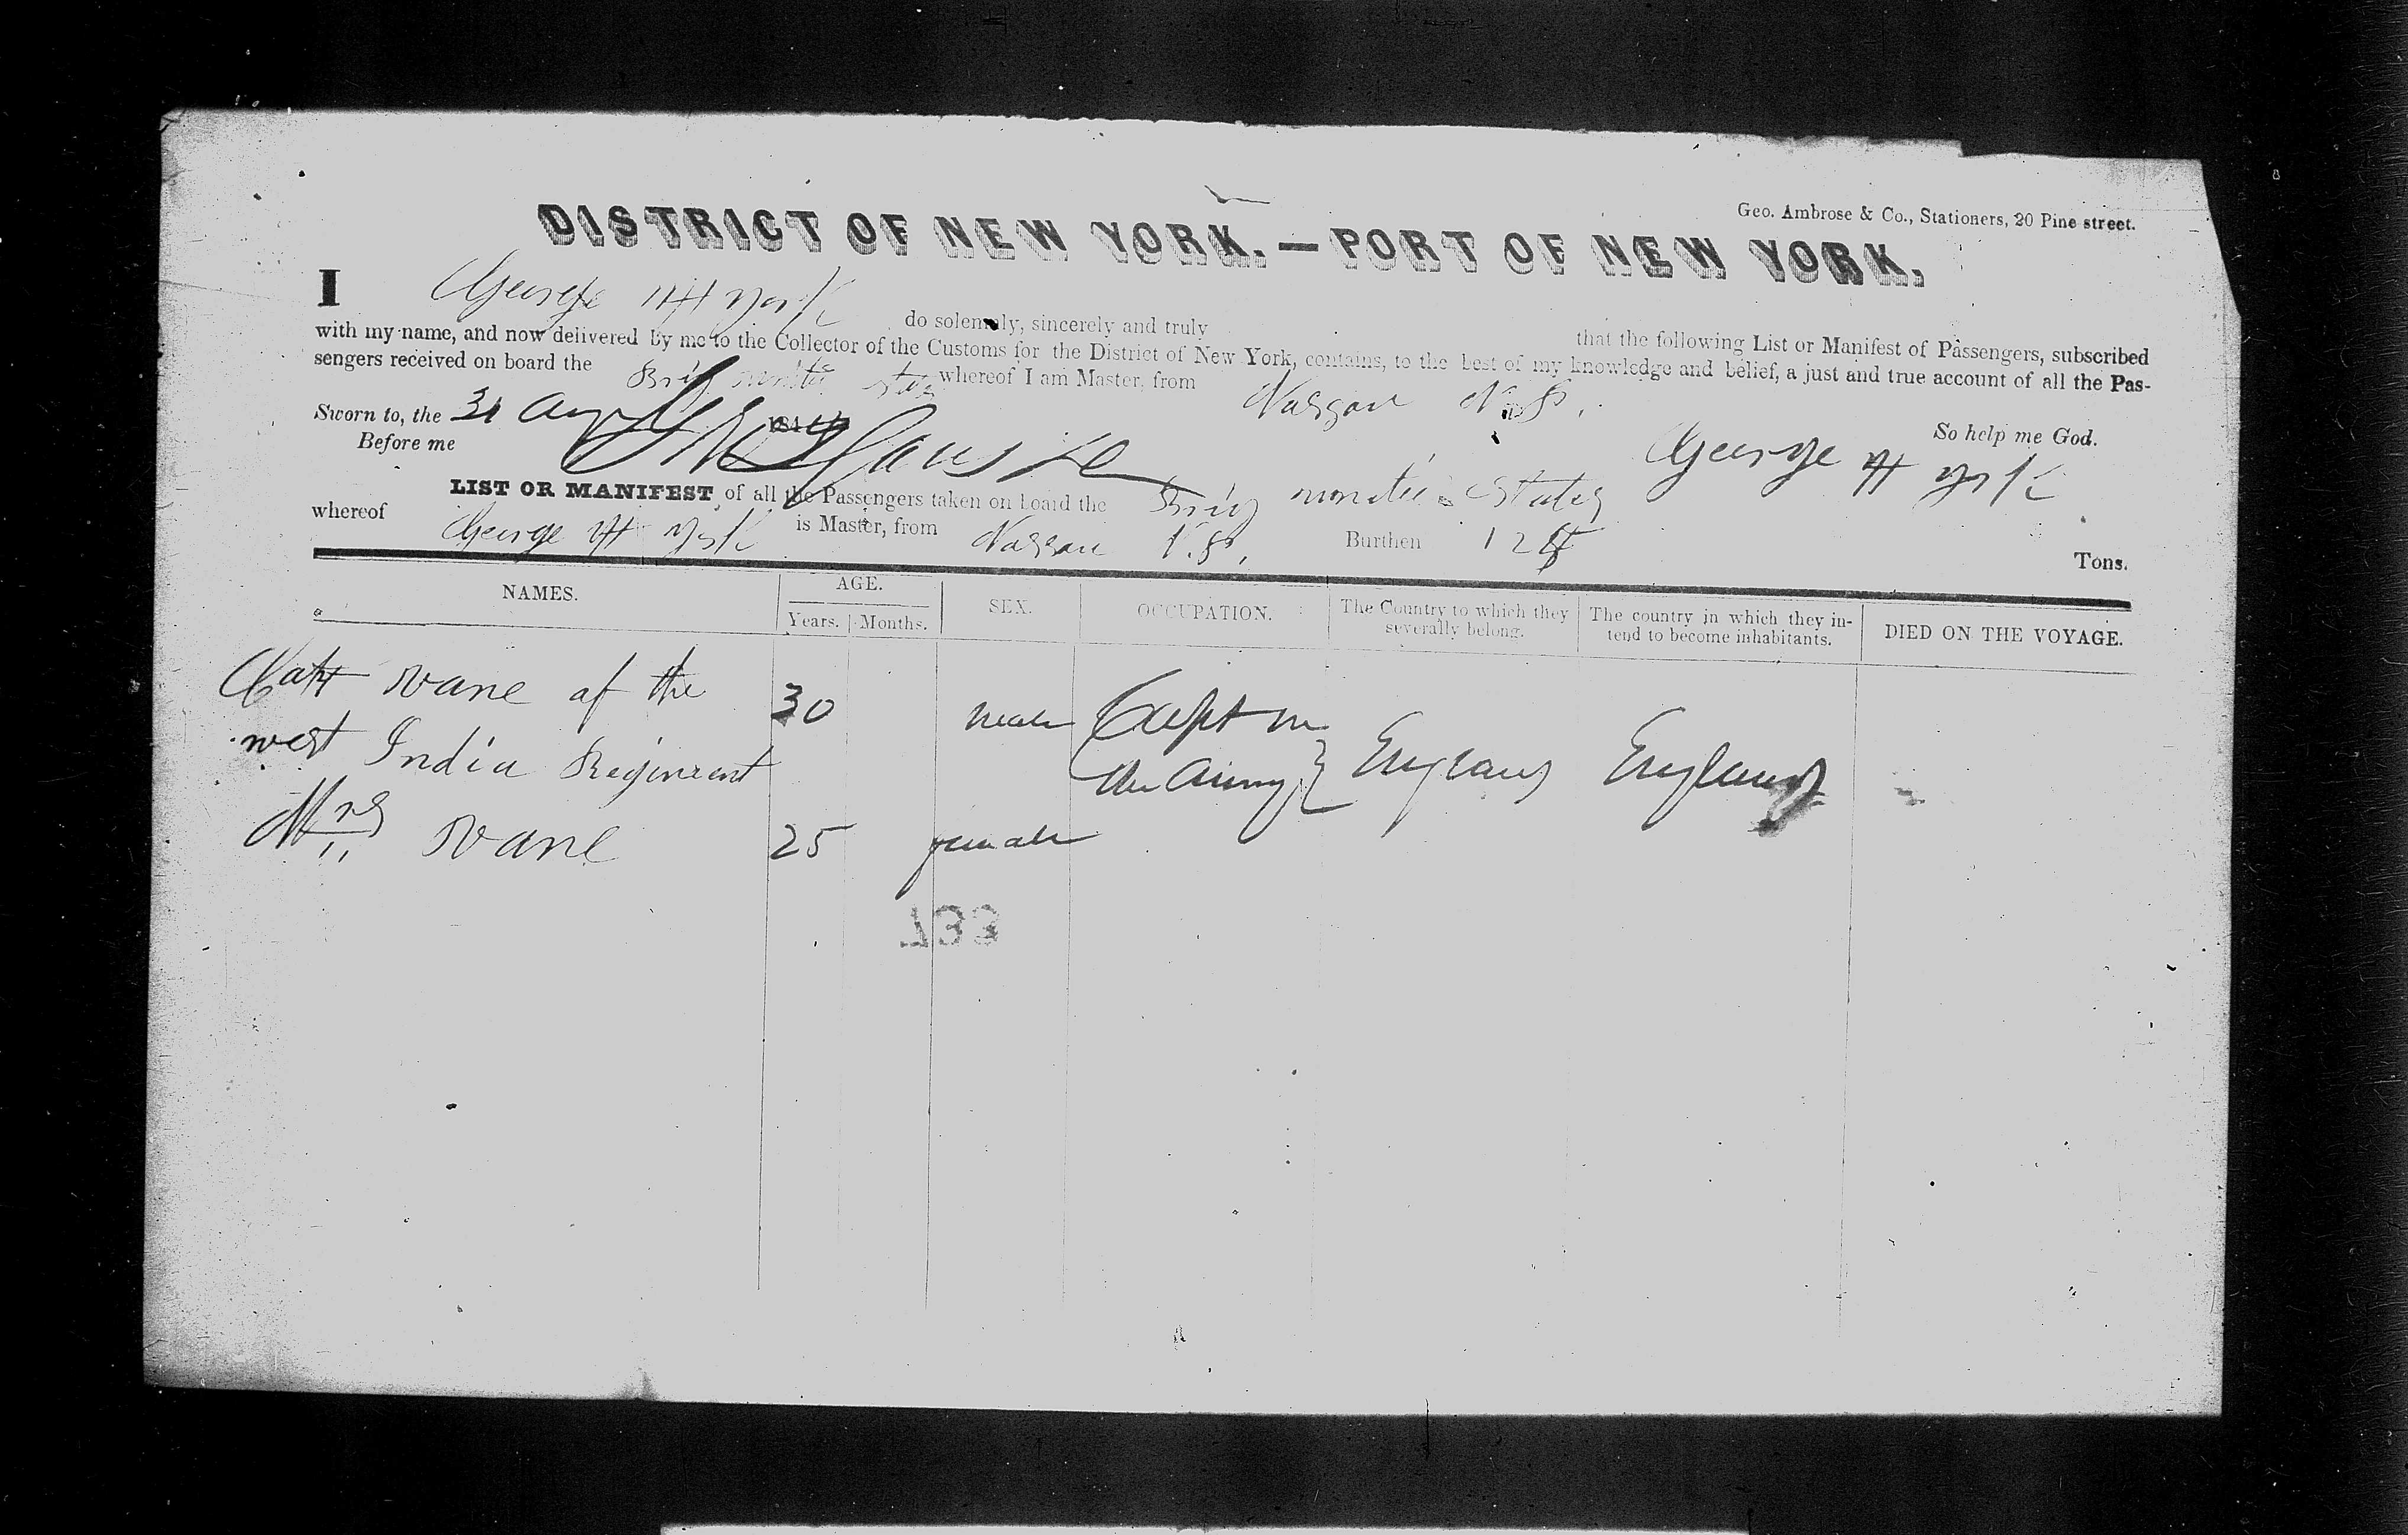 Geo. Ambrose & Co., Stationers, 20 Pine street.
DISTRICT OF NEW YORK.—PORT OF NEW YORK.
I George H York do solemnly, sincerely and truly that the following List or Manifest of Passengers, subscribed
with my name, and now delivered by me to the Collector of the Customs for the District of New York, contains, to the best of my knowledge and belief, a just and true account of all the Pas-
sengers received on board the Brig whereof I am Master, from Nassau N.P.
Sworn to, the 31 Aug 184 So help me God.
Before me George H York
LIST OR MANIFEST, of all the Passengers taken on board the Brig States
whereof George H York is Master, from Nassau N.P. Burthen Tons.
NAMES. AGE. SEX. OCCUPATION. The Country to which they severally belong. The country in which they in-tend to become inhabitants. DIED ON THE VOYAGE.
Years. Months.
Capt Vane of the 30 male Capt in
west India Regiment the Army } England England
Mrs Vane 25 female
733